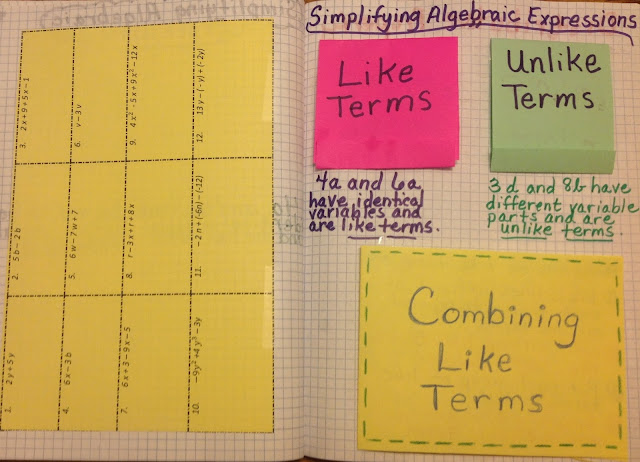 1. 2y+5y
2. 5b – 2b
3. 2x+9+5x-1
4. 6x – 3b
5. 6w – 7w + 7
6. v – 3v
7. 6x + 3 – 9x – 5
8. r – 3x + r + 8x
9. 4x² - 5x + 9x² – 12x
10. –9y² +4 y³ – 3y
11. – 2n + (-6n) – (-12)
12. 13y – (-y) + (-2y)
Simplifying Algebraic Expressions
Like
Terms
Unlike
Terms
4a and 6a
have identical
variables and
are like terms.
3d and 8b have
different variable
parts and are
unlike terms.
Combining
Like
Terms